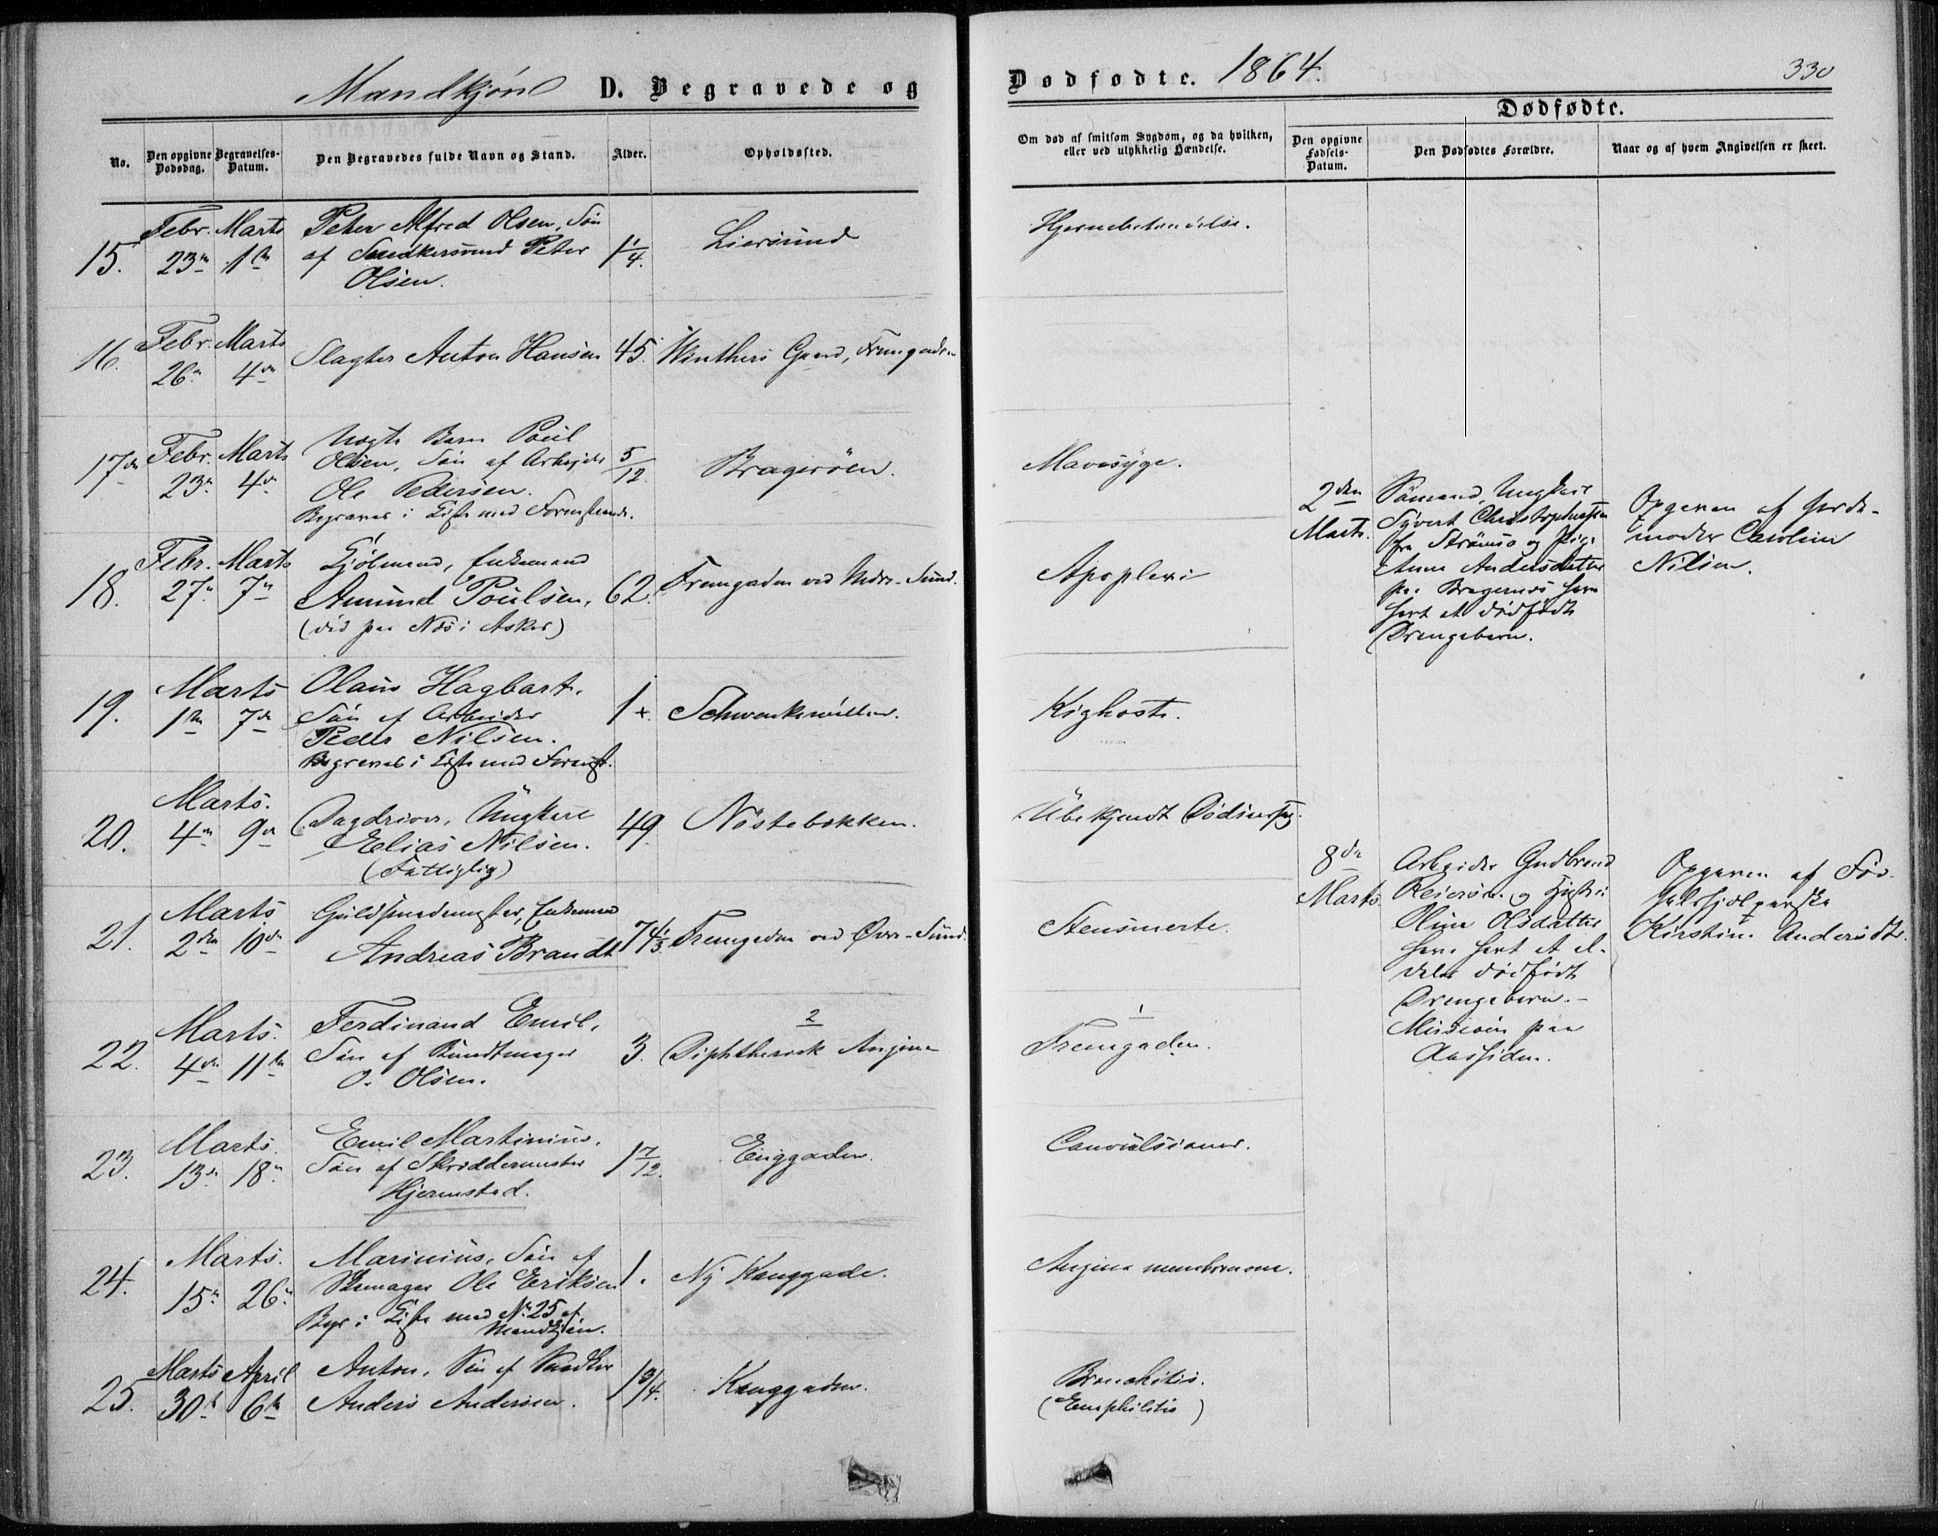 Mandkjøn D. Begravede og
Dødfødte. 1864.
330
Dødfødte.
No.
Den opgivne Dødsdag.
Begravelses-Datum.
Den Begravedes fulde Navn og Stand.
Alder.
Opholdssted.
Om død af smitsom Sygdom, og da hvilken,
eller ved ulykkelig Hændelse.
Den opgivne Fødsels-Datum.
Den Dødfødtes Forældre.
Naar og af hvem Angivelsen er skeet.
15. Febr. 23de Marts 1ste
Peter Alfred Olsen, Søn
af Peter
Olsen.
1 1/4. Liersund
16. Febr. 26de Marts 4de
Slagter Anton Hansen 45. Winthers Gaard, Fremgaden
17de Febr. 23de Marts 4de
Uægte Barn Poul
Olsen, Søn af Arbejde
Ole Pedersen.
Begravet i Kiste med
5/12 Bragerøen. Mavesyge.
18. Febr. 27de Marts 7de
Enkemand
Amund Poulsen,
(død paa Næs i Asker)
62. Fremgaden ved Nedre-Sund. Apoplexi
2den Marts.
Sømand, Ungkarl
Syvert Christophersen
fra Strømsø og Pige
Anne Andersdatter
paa Bragernæs have
havt et dødfødt
Drengebarn.
Opgiven af Jorde-
moder Caroline
Nilsen.
19. Marts 1ste 7de
Olaus Hagbart,
Søn af Arbeider
Peder Nilsen.
Begravet i Kiste med
1 Kighoste.
20. Marts. 4de 9de
Dagdriver, Ungkarl
Elias Nilsen.
(Fattiglig)
49. Nøstebakken. Ubekjendt Dødsaarsag.
21. Marts 2den 10de
Guldsmedmester, Enkemand
Andreas Brandt
74 1/3 Fremgaden ved Øvre-Sund. Stensmerte.
8de Marts.
Arbeider Gudbrand
og Hustru
Oline Olsdatter
have havt et æ-
dødfødt
Drengebarn.-
paa
Aassiden.
Opgiven af Fød-
selshjælperske
Kirstine Andersdtr.
22. Marts. 4de 11te
Ferdinand Emil,
Søn af Bundtmager
O. Olsen.
3. 2 Diphtherisk Angina 1 Fremgaden.
23. Marts. 13de 18de
Emil Martinius,
Søn af Skreddermester
Hjermstad.
1 7/12. Enggaden. Convulsioner.
24. Marts. 15de 26de
Marinius, Søn af
Skomager Ole Eriksen
Begr i Kiste med No 25 af
Mandkjøn.
1. Ny Konggade. Angina membranosa.
25. Marts 30te April 6te
Anton, Søn af Snedker
Anders Andersen.
1 3/4. Konggaden. Bronchitis.